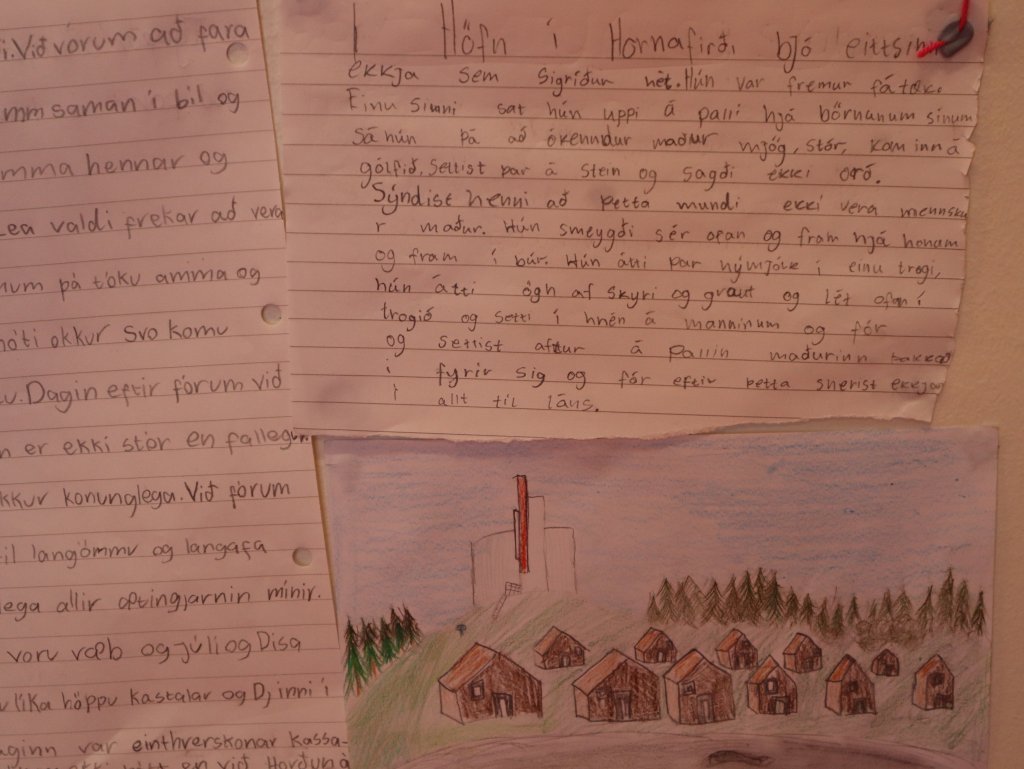 i. Við vorum að fara
mm saman í bíl og
mma hennar og
Lea valdi frekar að vera
num þá tóku amma og
móti okkur Svo komu
u. Dagin eftir fórum við
n er ekki stór en fallegur.
kkur konunglega. Við fórum
il langömmu og langafa
lega allir
mínir.
voru væb og júlí og Dísa
u líka höppu kastalar og Dj inni í
aginn var einthverskonar kassa-
en við Horðuná
Í Höfn í Hornafirði bjó eittsinn
ekkja sem Sigríður hét. Hún var fremur fátæk.
Einu sinni sat hún uppi á palli hjá börnunum sínum
Sá hún þá að ókenndur maður mjög, stór, kom inn á
gólfið, Settist þar á stein og sagði ekki orð.
Sýndist henni að þetta mundi ekki vera mennsku
r maður. Hún smeygði sér ofan og fram hjá honum
og fram í búr. Hún átti þar nýmjólk í einu trogi,
hún átti ögn af skyri og graut og lét ofan í
trogið og setti í hnén á manninum og fór
og settist aftur á pallin maðurinn þakkað
i fyrir sig og fór eftir þetta snerist ekkjan
i allt til láns.